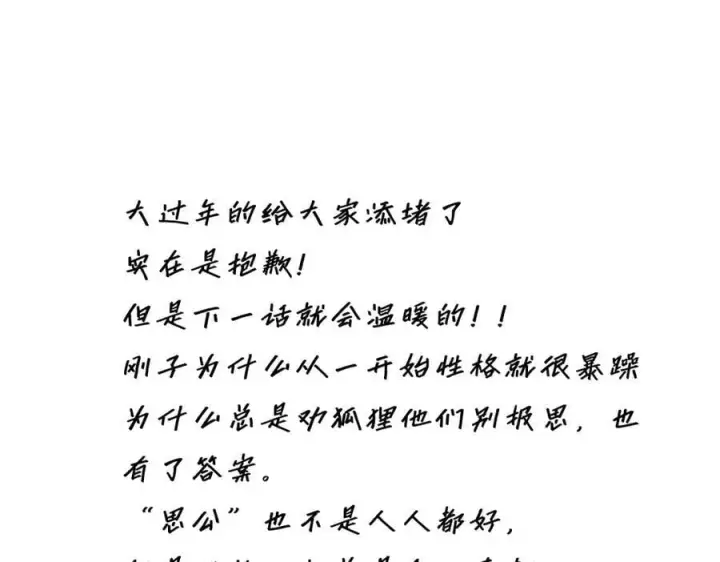 大过年的给大家添堵了
实在是抱歉！
但是下一话就会温暖的！！
刚子为什么从一开始性格就很暴躁
为什么总是劝狐狸他们别报恩，也
有了答案。
“恩公”也不是人人都好，